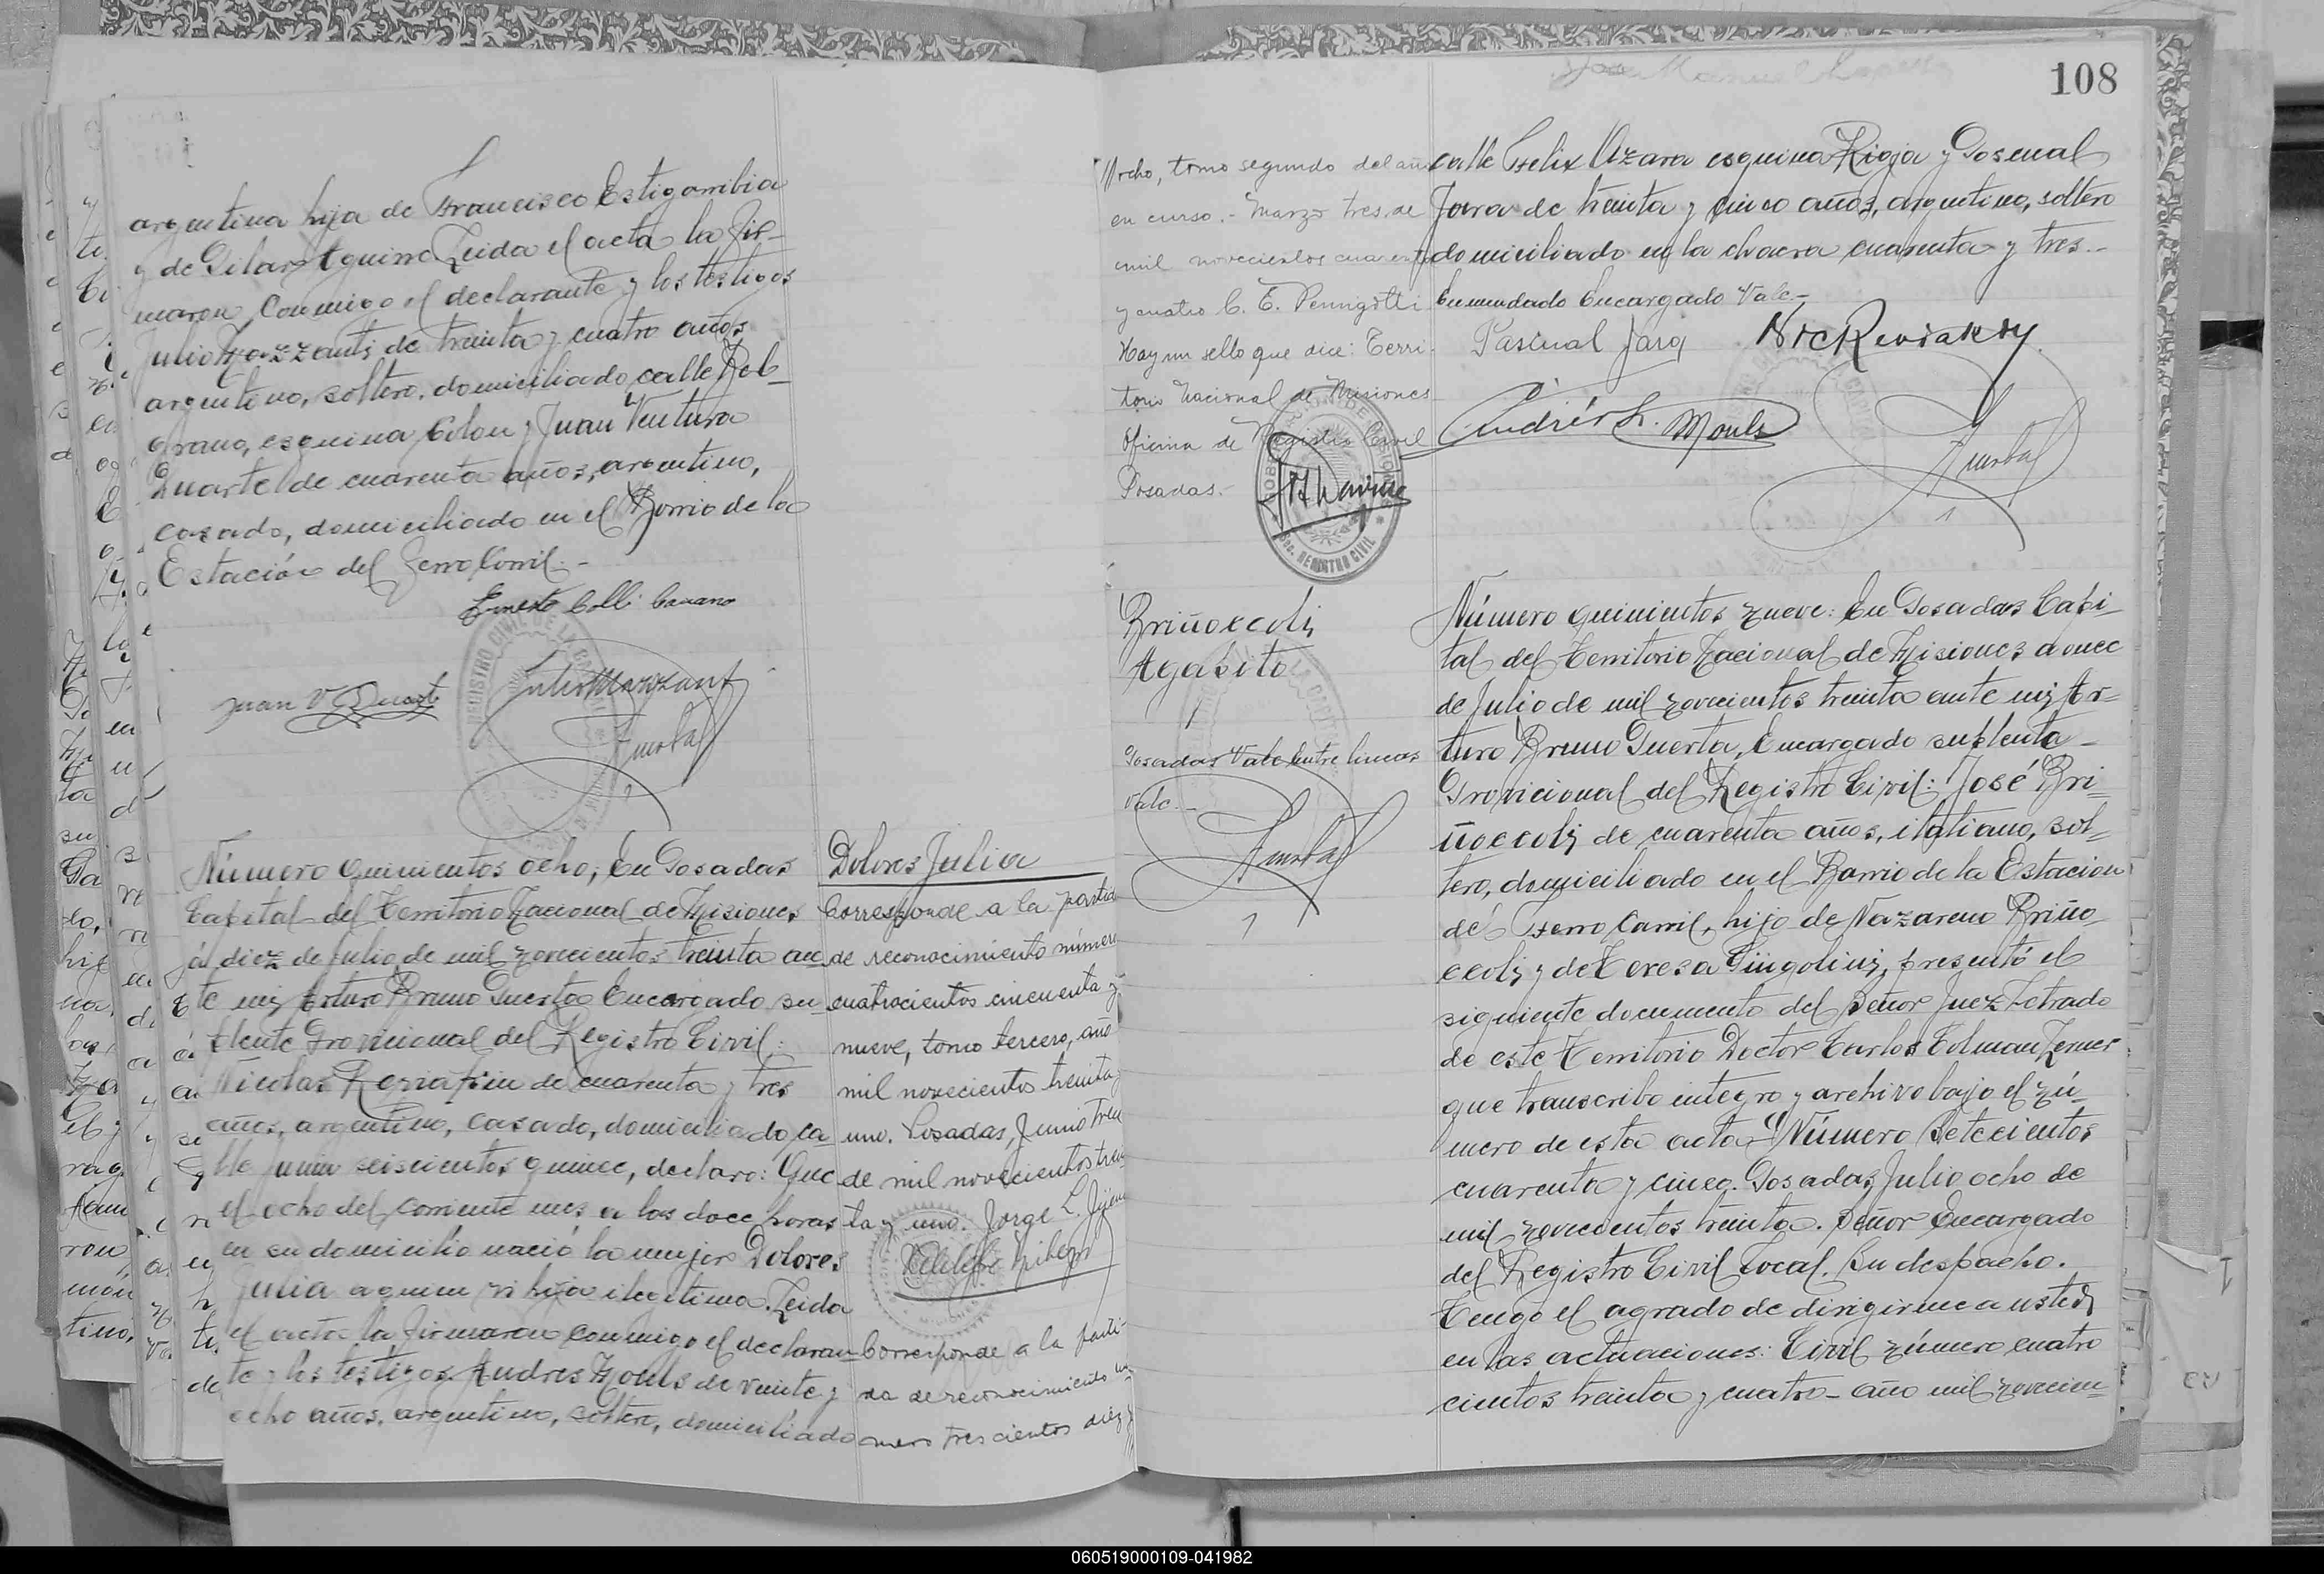 argentina hija de Francisco Estigarribia
y de Pilar Aguirre Leida el acta la fir-
maron conmigo el declarante y los testigos
Julio Manzanti de treinta y cuatro años
argentino, soltero, domiciliado calle Bel-
grano, esquina Colon y Juan Ventura
Duarte de cuarenta años, argentino,
casado, domiciliado en el Barrio de la
Estación del Ferro Carril.-
Ernesto Colli
Juan V Duarte
Julio Manzanti
Número quinientos ocho; En Posadas
Capital del Territorio Nacional de Misiones
á diez de Julio de mil novecientos treinta an
te mi Arturo Bruno Puerta Encargado su-
plente Provicional del Registro Civil:
Nicolas de cuarenta y tres
años, argentino, casado, domiciliado ca
lle Junin seiscientos quince, declaro: Que
el ocho del corriente mes a las doce horas
en su domicilio nació la mujer Dolores
Julia a quien vi hija ilegitima. Leida
el acta la firmaron conmigo el declaran-
te y los testigos Andres Mouls de veinte y
ocho años, argentino, soltero, domiciliado
Dolores Julia
Corresponde a la partida
de reconocimiento número
cuatrocientos cincuenta y
nueve, tomo tercero, año
mil novecientos treinta y
uno. Posadas, Junio
de mil novecientos trein
ta y uno. Jorge L.
Corresponde a la parti-
da de reconocimiento nú
mero trescientos diez y
108
ocho, tomo segundo del año
en curso.- Marzo tres de
mil novecientos cuarenta
y cuatro C. E. Pennigotti
Hay un sello que dice: Terri-
torio Nacional de Misiones
Oficina de Registro Civil
Posadas.-
REGISTRO CIVIL
calle Felix Azara esquina Rioja y Pascual
Jara de treinta y cinco años, argentino, soltero
domiciliado en la chacra cuarenta y tres.-
Enmendado Encargado Vale.-
Pascual Jara
Andrés L. Mouls
Briñoccoli
Agapito
Posadas Vale Entre lineas
Vale.-
Número quinientos nueve: En Posadas Capi-
tal del Territorio Nacional de Misiones a once
de Julio de mil novecientos treinta ante mi Ar-
turo Bruno Puerta, Encargado suplente
Provicional del Registro Civil: José Bri-
ñoccoli de cuarenta años, italiano, sol-
tero, domiciliado en el Barrio de la Estacion
del Ferro Carril, hijo de Nazareno Briño
ccoli y de Teresa Gingolini, presentó el
siguiente documento del Señor Juez Letrado
de este Territorio Doctor Carlos Tolman
que transcribo integro y archivo bajo el nú-
mero de esta acta "Número Setecientos
cuarenta y cinco. Posadas, Julio ocho de
mil novecientos treinta. Señor Encargado
del Registro Civil Local. Su despacho.
Tengo el agrado de dirigirme a usted,
en las actuaciones: Civil número cuatro
cientos treinta y cuatro- año mil novecien-
060519000109-041982